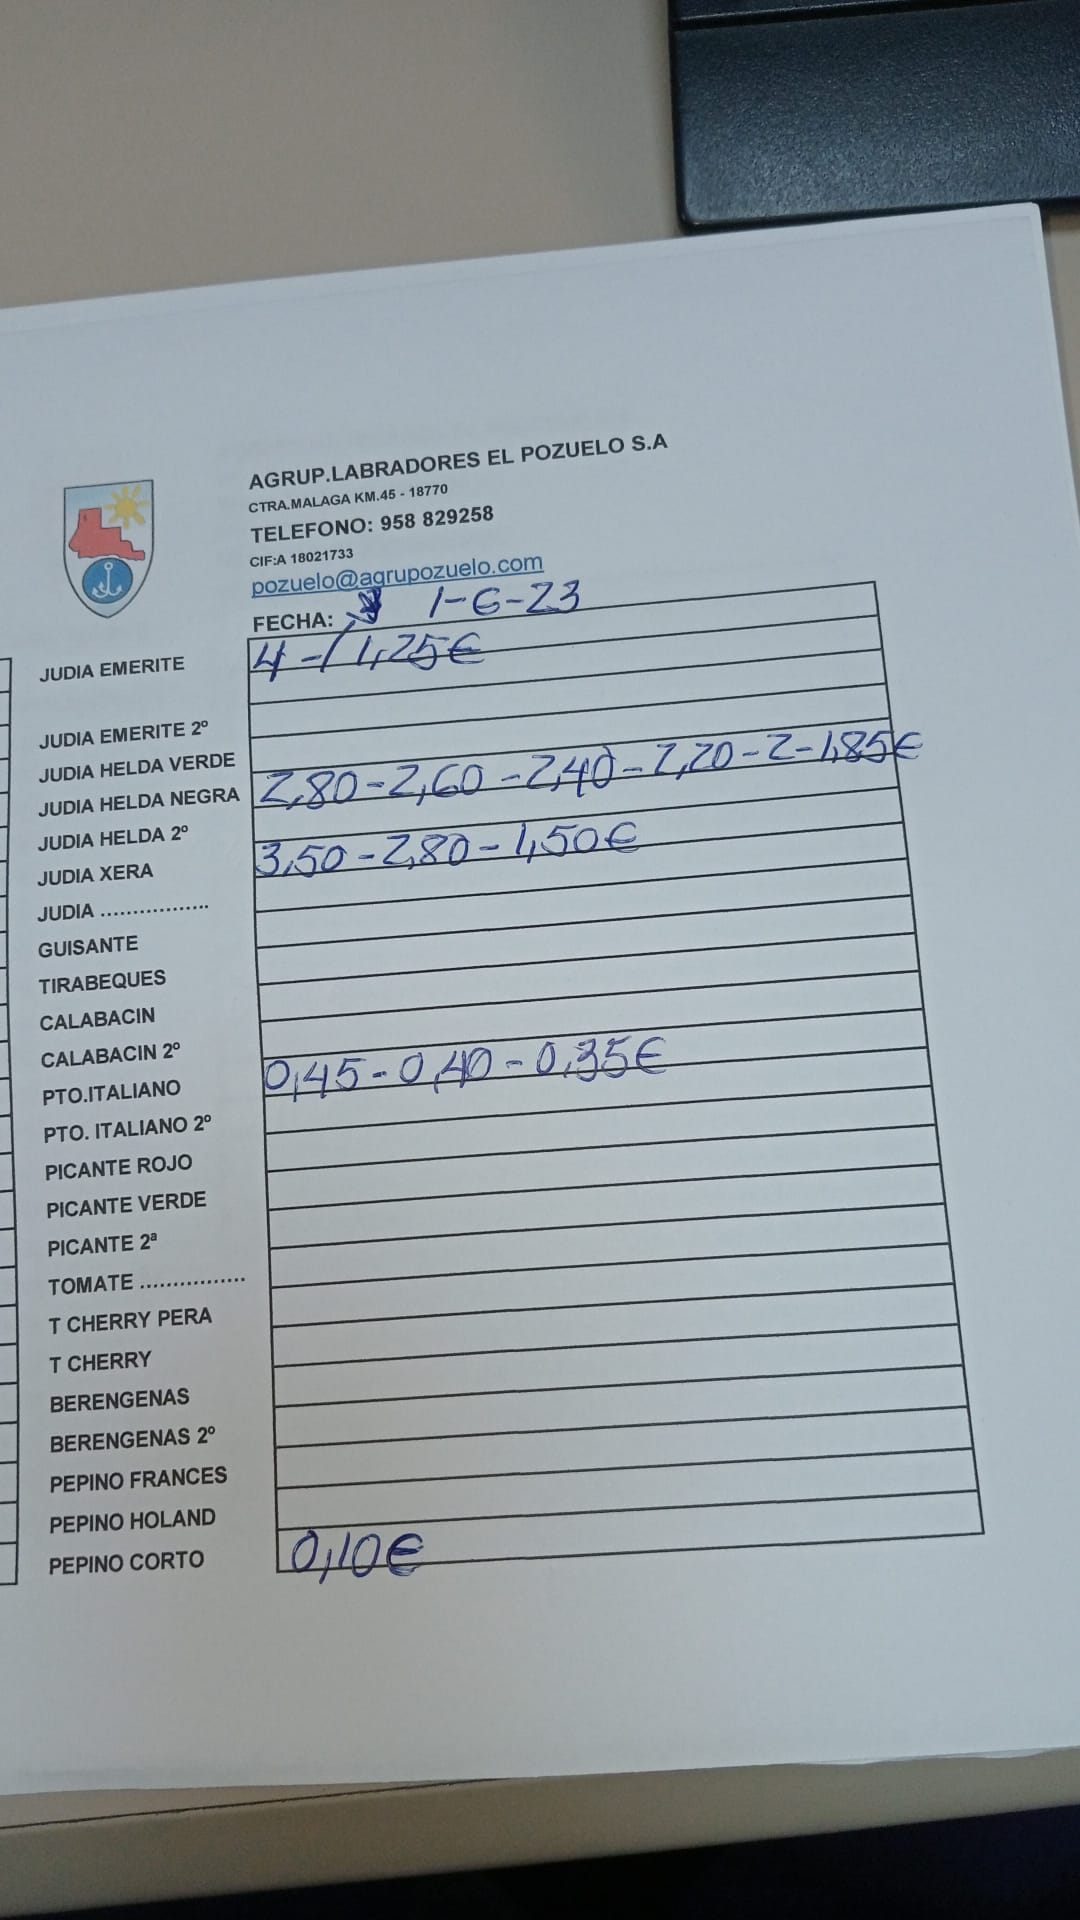 AGRUP.LABRADORES EL POZUELO S.A
CTRA.MALAGA KM.45 - 18770
TELEFONO: 958 829258
CIF:A 18021733
pozuelo@agrupozuelo.com
FECHA: 1-6-23
JUDIA EMERITE 4-/1,25€
JUDIA EMERITE 2º
JUDIA HELDA VERDE
JUDIA HELDA NEGRA 2,80-2,60-2,40-2,20-2-1,85€
JUDIA HELDA 2º
JUDIA XERA 3,50-2,80-1,50€
JUDIA .................
GUISANTE
TIRABEQUES
CALABACIN
CALABACIN 2º
PTO.ITALIANO 0,45-0,40-0,35€
PTO. ITALIANO 2º
PICANTE ROJO
PICANTE VERDE
PICANTE 2ª
TOMATE ................
T CHERRY PERA
T CHERRY
BERENGENAS
BERENGENAS 2º
PEPINO FRANCES
PEPINO HOLAND
PEPINO CORTO 0,10€